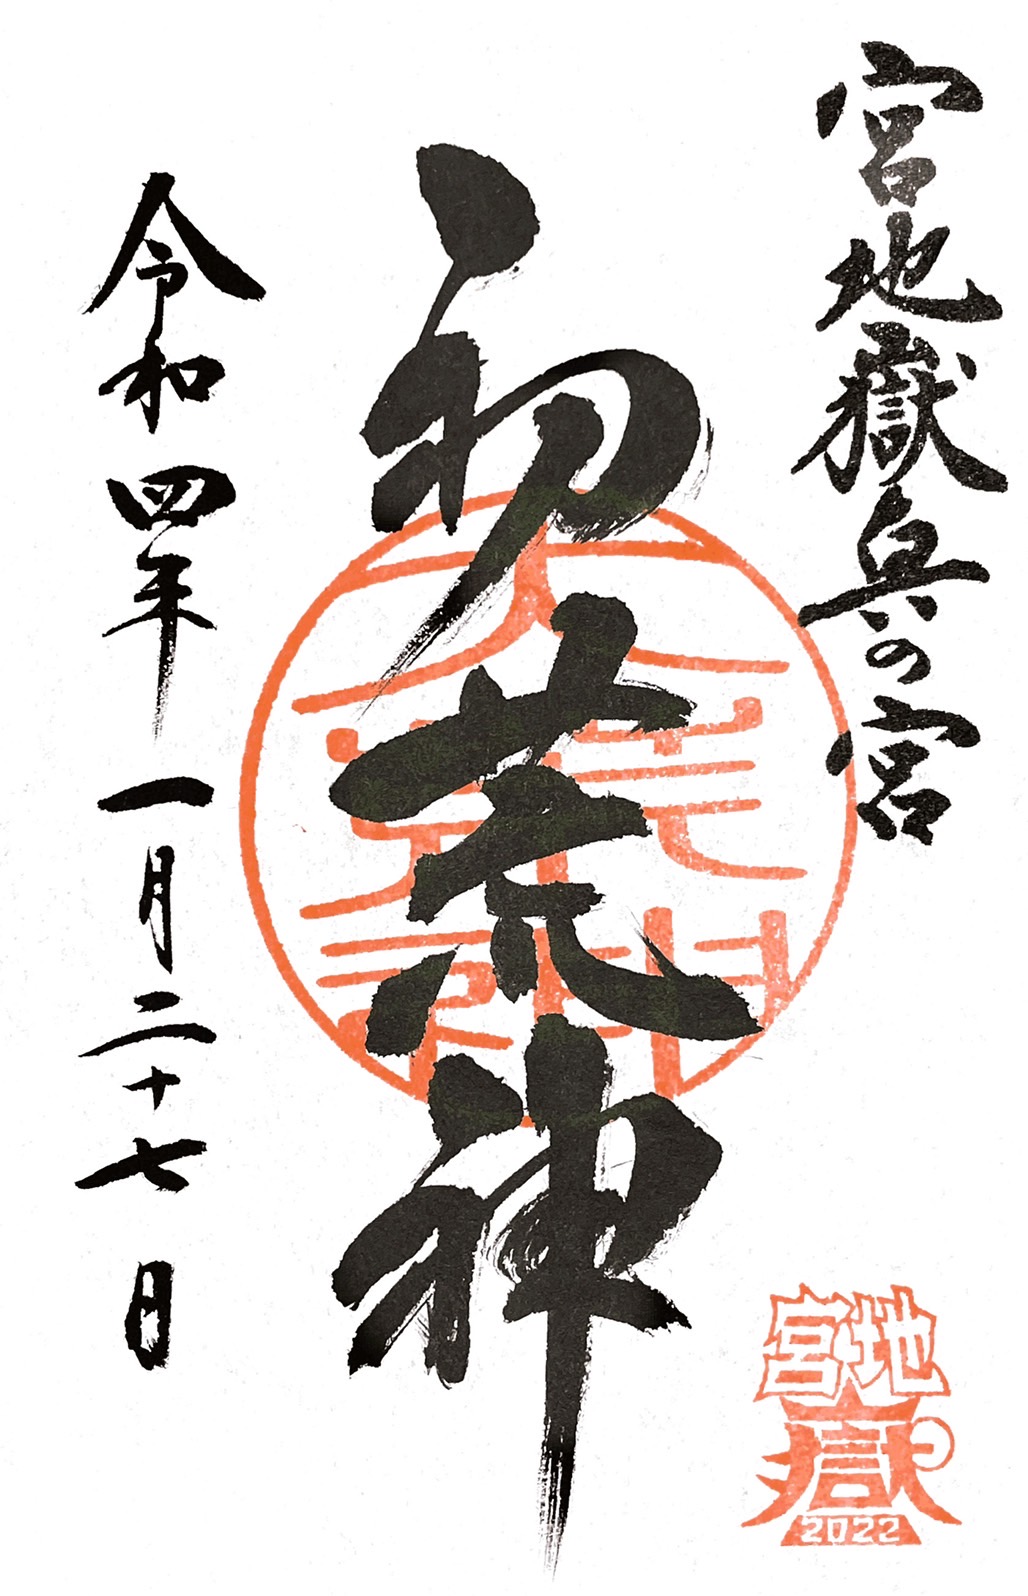 宮地嶽兵の宮
初荒神
令和四年一月二十七日
宮地
嶽
2022